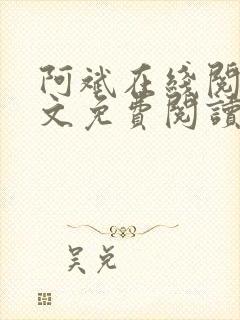 阿斌在綫閱
文免費閱讀
吴兑